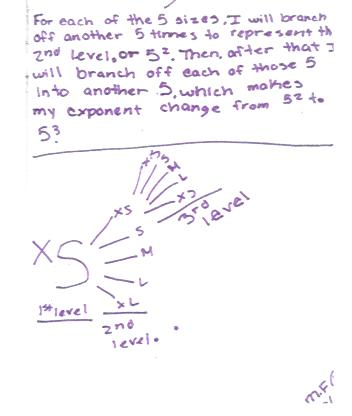 For each of the 5 sizes, I will branch
off another 5 times to represent th
2nd level, or 5². Then, after that I
will branch off each of those 5
into another 5, which makes
my exponent change from 5² to
5³.
XS S M L XL
3rd level
XS
S
M
L
XL
XS
1st level
2nd
level.